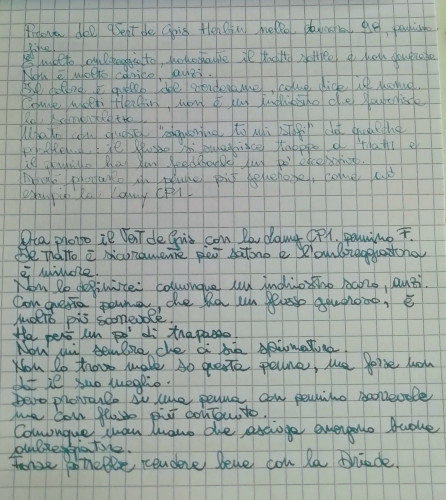 Prova del Vert de Gris Herbin nella penna
fine.
È molto ombreggiato, nonostante il tratto sottile e non
Non è molto carico, anzi.
Il colore è quello del verderame, come dice il nome.
Come molti Herbin, non è un inchiostro che favorisce
la scorrevolezza.
Usato con questa "signorina tu mi stufi" dà qualche
problema: il flusso si tratti e
il pennino ha un "feedback" un po' eccessivo.
Dovrò provarlo in penne più generose, come ad
esempio la Lamy CP1.
Ora provo il Vert de Gris con la Lamy CP1, pennino F.
Il tratto è sicuramente più saturo e l'ombreggiatura
è minore.
Non lo definirei comunque un inchiostro scuro, anzi.
Con questa penna, che ha un flusso generoso, è
molto più scorrevole.
Ha però un po' di trapasso.
Non mi sembra che ci sia spiumatura.
Non lo trovo male su questa penna, ma forse non
dà il suo meglio.
Devo provarlo su una penna con pennino scorrevole
ma con flusso più contenuto.
Comunque man mano che asciuga emergono buone
ombreggiature.
Forse potrebbe rendere bene con la